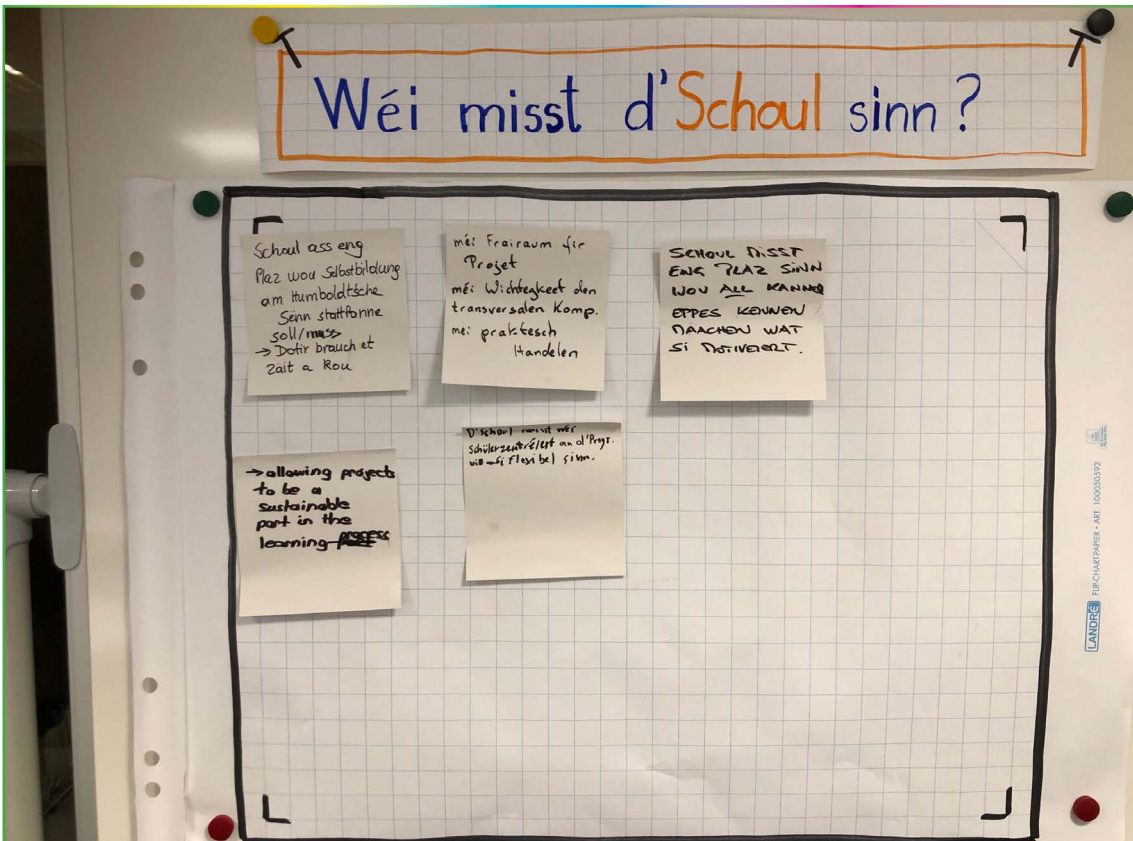 Wéi misst d'Schoul sinn?
Schoul ass eng
Plaz wou Selbstbildung
am Humboldtsche
Senn stattfonne
soll/muss
→ Dofir brauch et
Zäit a Rou
méi Frairaum fir
Projet
méi Wichtegkeet den
transversalen Komp.
méi praktesch
Handelen
SCHOUL MISST
ENG PLAZ SINN
WOU ALL KANNER
EPPES KENNEN
MAACHEN WAT
SI MOTIVEIERT.
→ allowing projects
to be a
sustainable
part in the
learning process
D'Schoul misst
Schülerzentréiert an d'Progr.
flexibel sinn.
LANDRÉ FLIP-CHART-PAPIER • ART. 100050592